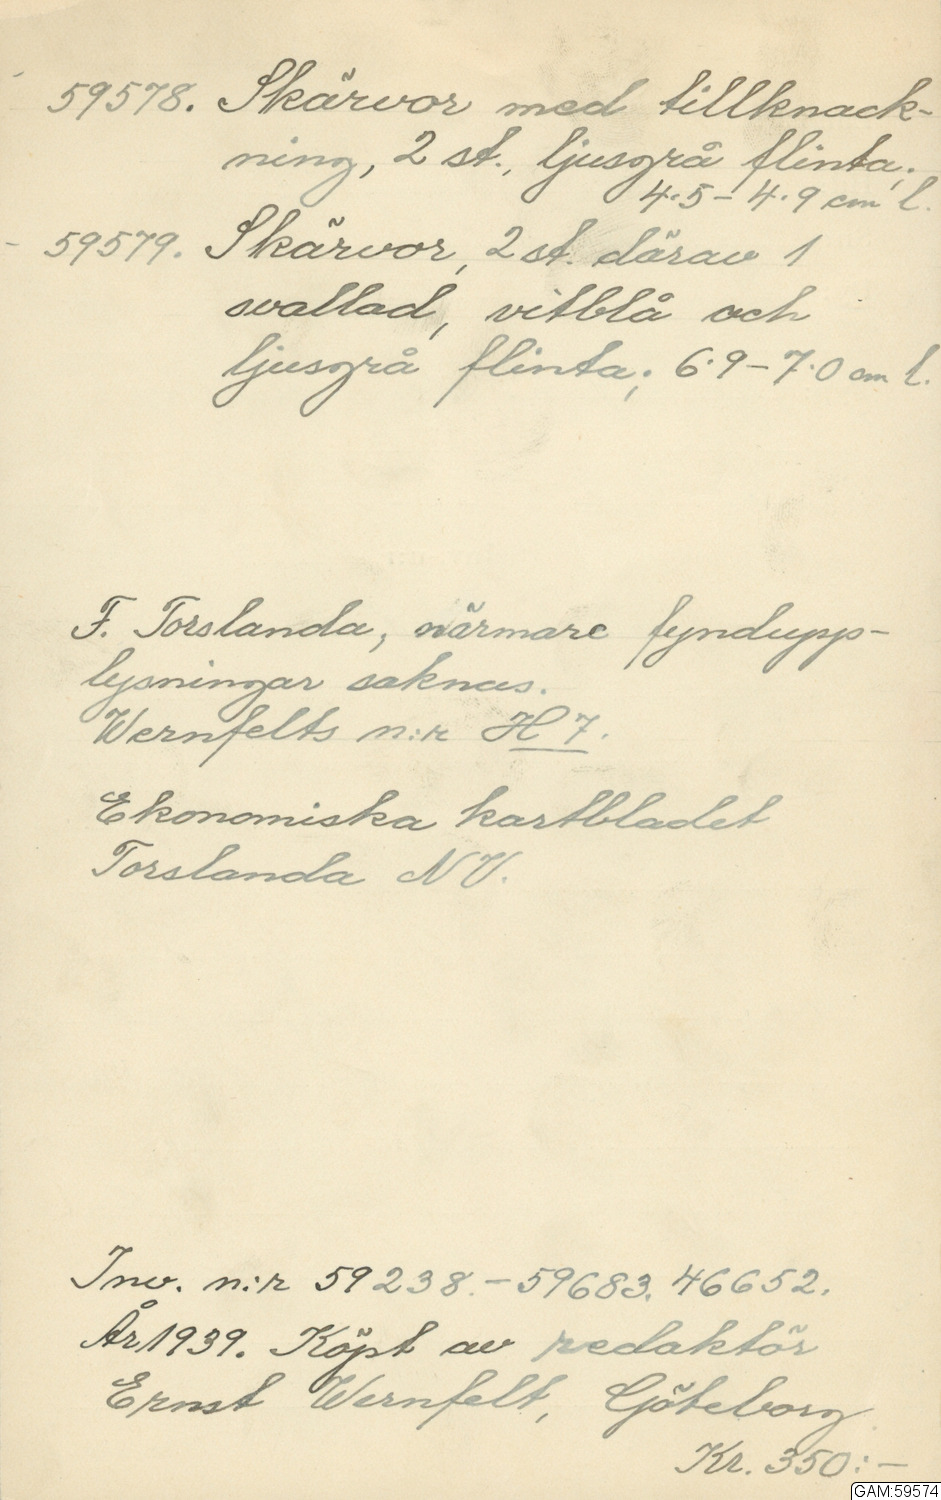 59578. Skärvor med tillknack-
ning, 2 st., ljusgrå flinta;
4.5 – 4.9 cm l.
- 59579. Skärvor, 2 st. därav 1
svallad, vitblå och
ljusgrå flinta; 6.9 – 7.0 cm l.
F. Torslanda, närmare fyndupp-
lysningar saknas.
Wernfelts n:r H 7.
Ekonomiska kartbladet
Torslanda NV.
Inv. n:r 59238. – 59683. 46652.
År 1939. Köpt av redaktör
Ernst Wernfelt, Göteborg
Kr. 350:–
GAM:59574